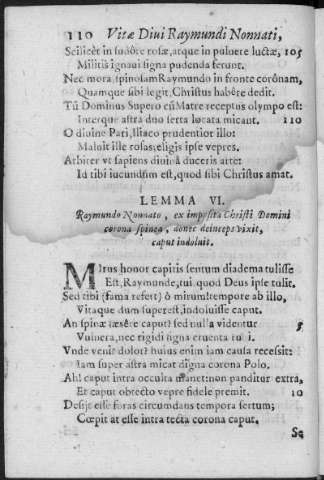 110 Vitæ Diui Raymundi Nonnati,
Scilicèt in sudôre rosæ, atque in puluere luctæ, 105
Militis ignaui signa pudenda ferunt.
Nec mora spinosam Raymundo in fronte corônam,
Quamque sibi legit, Christus habêre dedit.
Tũ Dominus Supero cũ Matre receptus olympo est:
Interque astra duo serta locata micant. 110
O diuine Pari, Iliaco prudentior illo:
Maluit ille rosas, eligis ipse vepres.
Arbiter vt sapiens diuinâ duceris arte:
Id tibi iucundũm est, quod sibi Christus amat.
LEMMA VI.
Raymundo Nonnato, ex imposita Christi Domini
corona spinea, donec deinceps vixit,
caput indoluit.
MIrus honor capitis sentum diadema tulisse
Est, Raymunde, tui quod Deus ipse tulit.
Sed tibi (fama refert) ô mirum! tempore ab illo,
Vitaque dum superest, indoluisse caput.
An spinæ læsêre caput? sed nulla videntur 5
Vulnera, nec rigidi signa cruenta
Vnde venit dolor? huius enim iam causa recessit:
Iam super astra micat digna corona Polo.
Ah! caput intra occulta manet: non panditur extra,
Et caput obtecto vepre fidele premit. 10
Desijt esse foras circumdans tempora sertum;
Cœpit at esse intra tecta corona caput.
Se